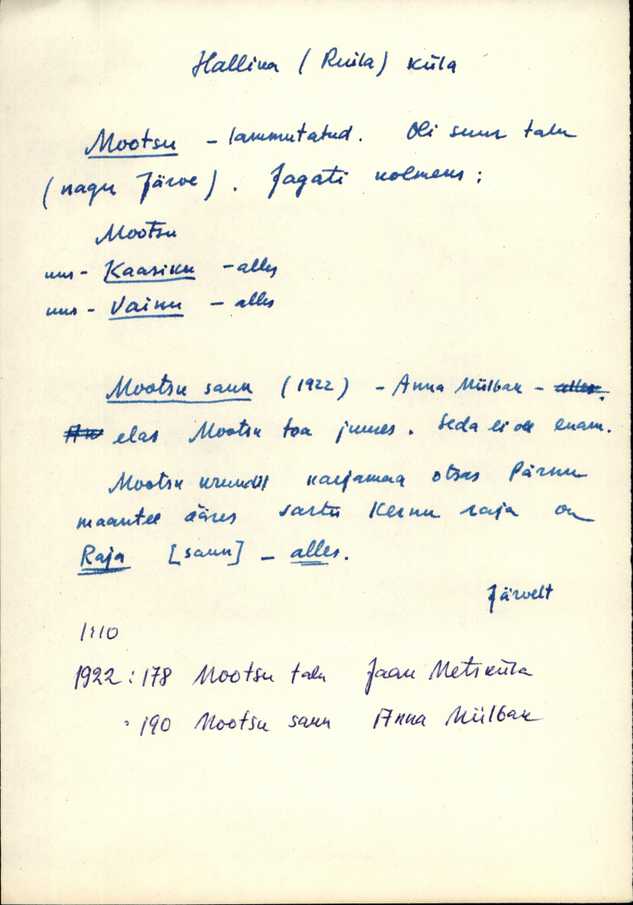 Hallina (Ruila) küla
Mootsu - lammutatud. Oli suur talu
(nagu Järve). Jagati kolmens:
Mootsu
uus - Kaasiku - alles
uus - Vainu - alles
Mootsu saun (1922) - Anna Mülbak - alles.
An elas Mootsu toa juures. Seda ei ole enam.
Mootsu krundil karjamaa otsas Pärnu
maantee ääres vastu Kernu raja on
Raja [saun] - alles.
Järvelt
1:10
1922: 178 Mootsu talu Jaan Metsküla
: 190 Mootsu saun Anna Mülbak